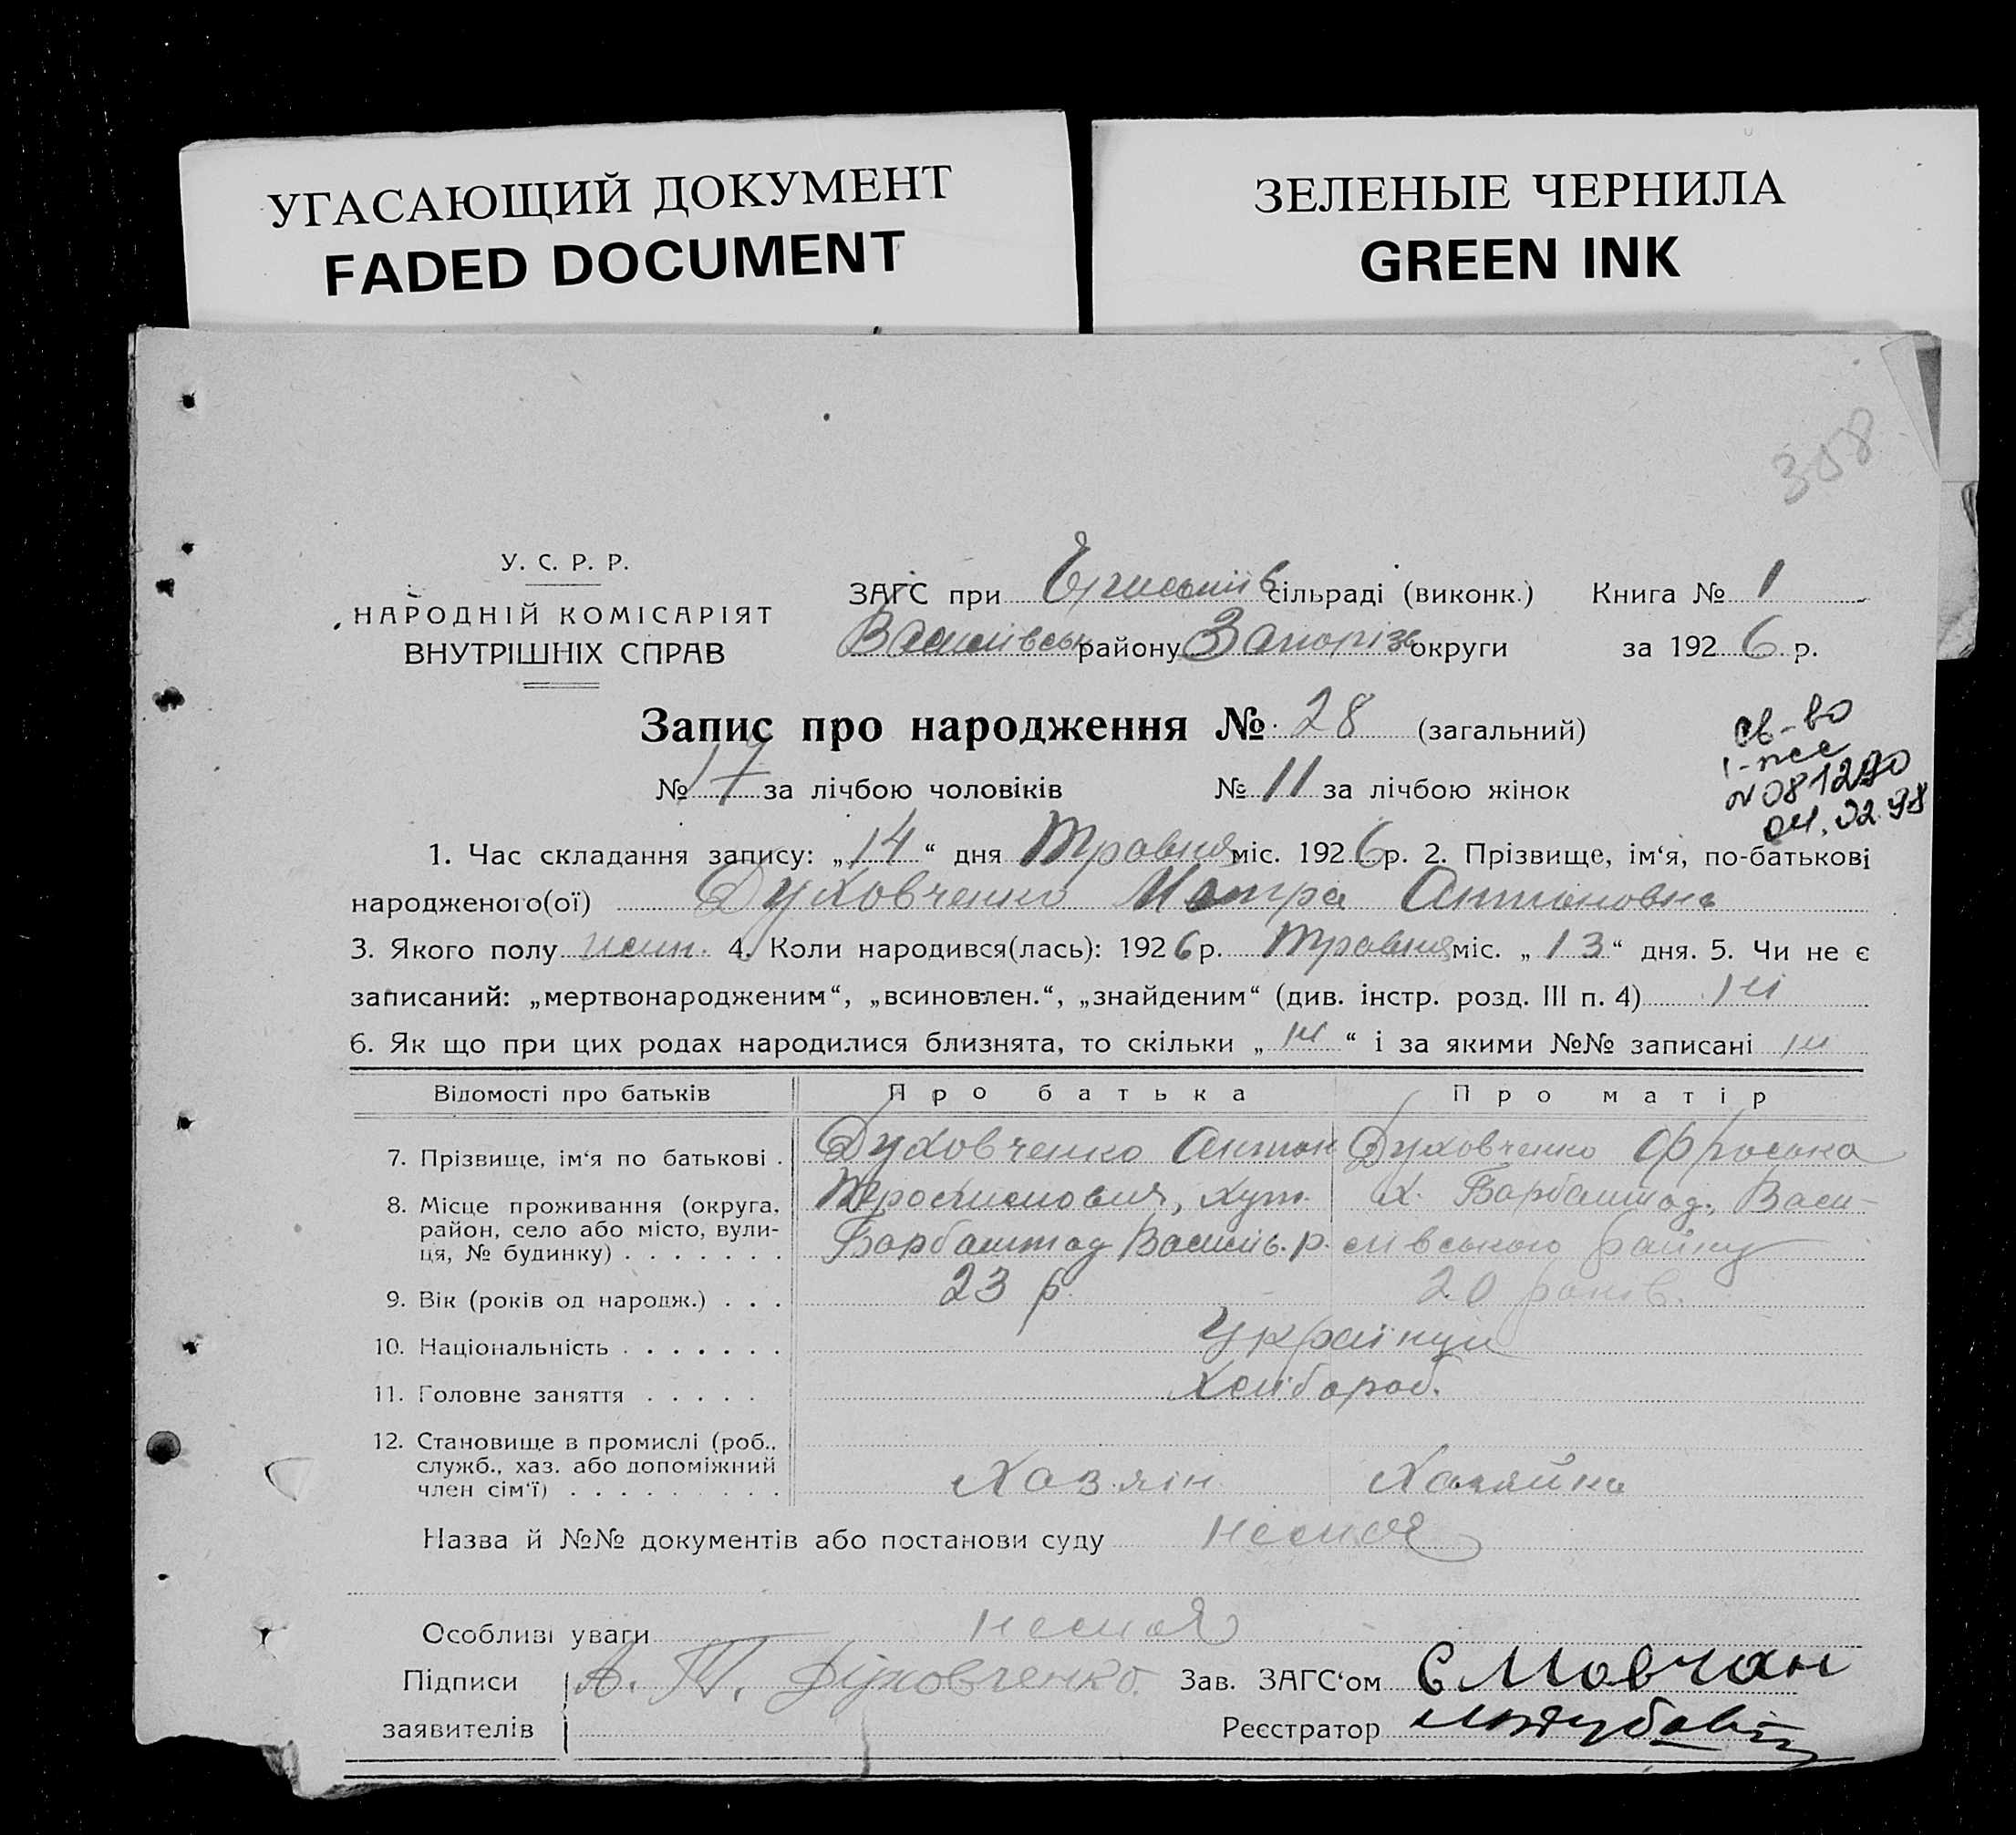 УГАСАЮЩИЙ ДОКУМЕНТ
FADED DOCUMENT
ЗЕЛЕНЫЕ ЧЕРНИЛА
GREEN INK
308
У. С. Р. Р.
НАРОДНІЙ КОМІСАРІЯТ
ВНУТРІШНІХ СПРАВ
ЗАГС при сільраді (виконк.) Книга № 1
Василівськ району Запорізь округи за 1926 р.
Запис про народження № 28 (загальний)
№ 17 за лічбою чоловіків № 11 за лічбою жінок
св-во
081290
04.02.98
1. Час складання запису: „14“ дня Травня міс. 1926 р. 2. Прізвище, ім‘я, по-батькові
народженого(ої) Духовченко Мотра Антоновна
3. Якого полу жін. 4. Коли народився(лась): 1926 р. Травня міс. „13“ дня. 5. Чи не є
записаний: „мертвонародженим“, „всиновлен.“, „знайденим“ (див. інстр. розд. III п. 4) ні
6. Як що при цих родах народилися близнята, то скільки „ні“ і за якими №№ записані ні
Відомості про батьків Про батька Про матір
7. Прізвище, ім‘я по батькові . Духовченко Антон Духовченко Фроська
8. Місце проживання (округа, район, село або місто, вулиця, № будинку) . . . . . . . хут. Барбаштад Василів. р. Х. Барбаштад, Василівського району
9. Вік (років од народж.) . . . 23 р. 20 років.
10. Національність . . . . . . . Українці
11. Головне заняття . . . . . Хліб ороб.
12. Становище в промислі (роб., служб., хаз. або допоміжний член сім‘ї) . . . . . . . . . Хазяін Хазяйка
Назва й №№ документів або постанови суду немає
Особливі уваги немає
Підписи А. Т. Духовченко. Зав. ЗАГС‘ом Є Мовчан
заявителів Реєстратор